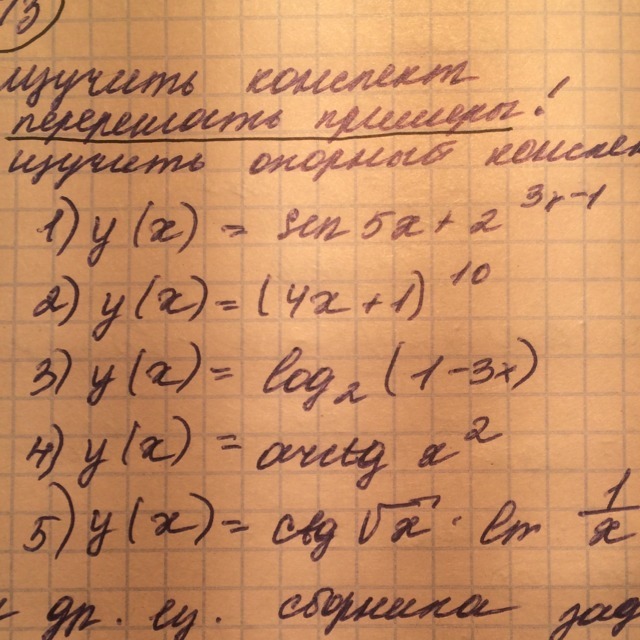 13
изучить конспект
перерешать примеры!
изучить опорный конспек
1) y(x) = sin 5x + 2^(3x-1)
2) y(x) = (4x+1)^10
3) y(x) = log₂ (1-3x)
4) y(x) = arctg x²
5) y(x) = ctg √x · ln 1/x
др. су. сборника зад